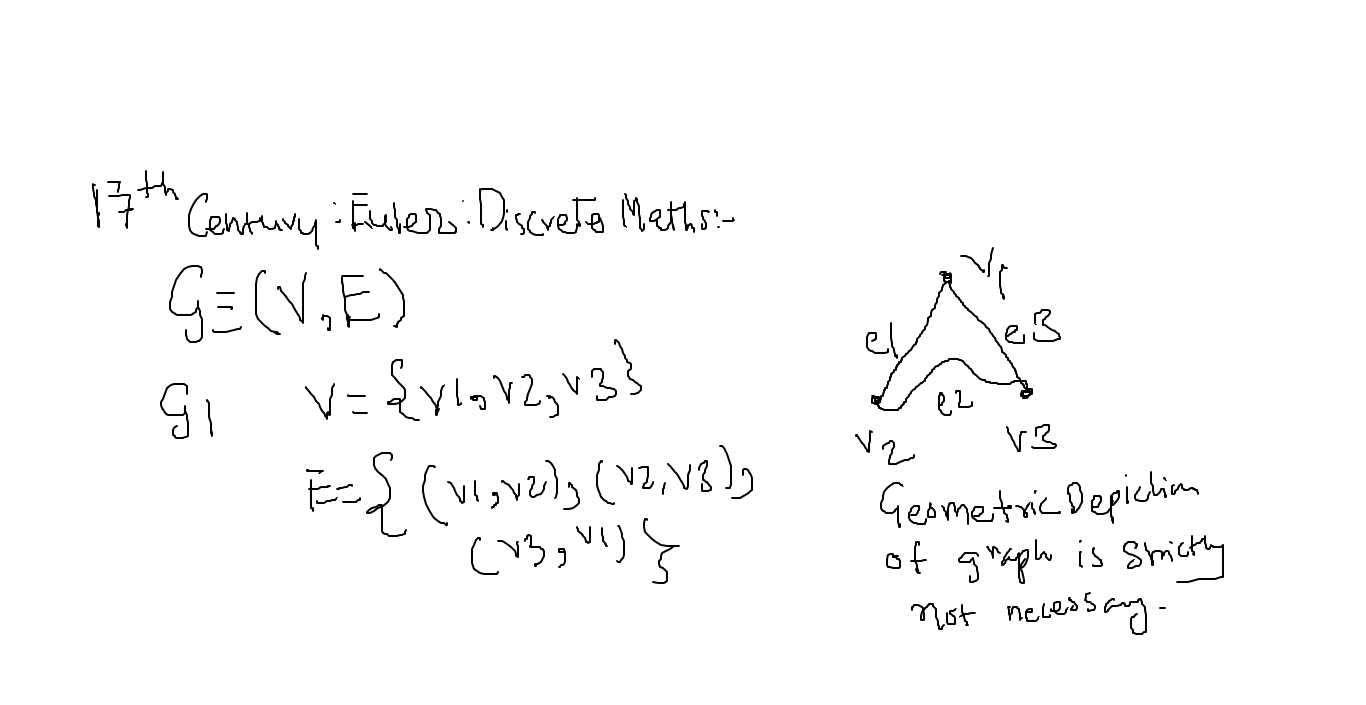 17th Century : Euler : Discrete Maths:-
G≡(V,E)
G1 V={v1,v2,v3}
E={(v1,v2),(v2,v3),
(v3,v1)}
v1
e1 e3
e2
v2 v3
Geometric Depiction
of graph is strictly
not necessary.